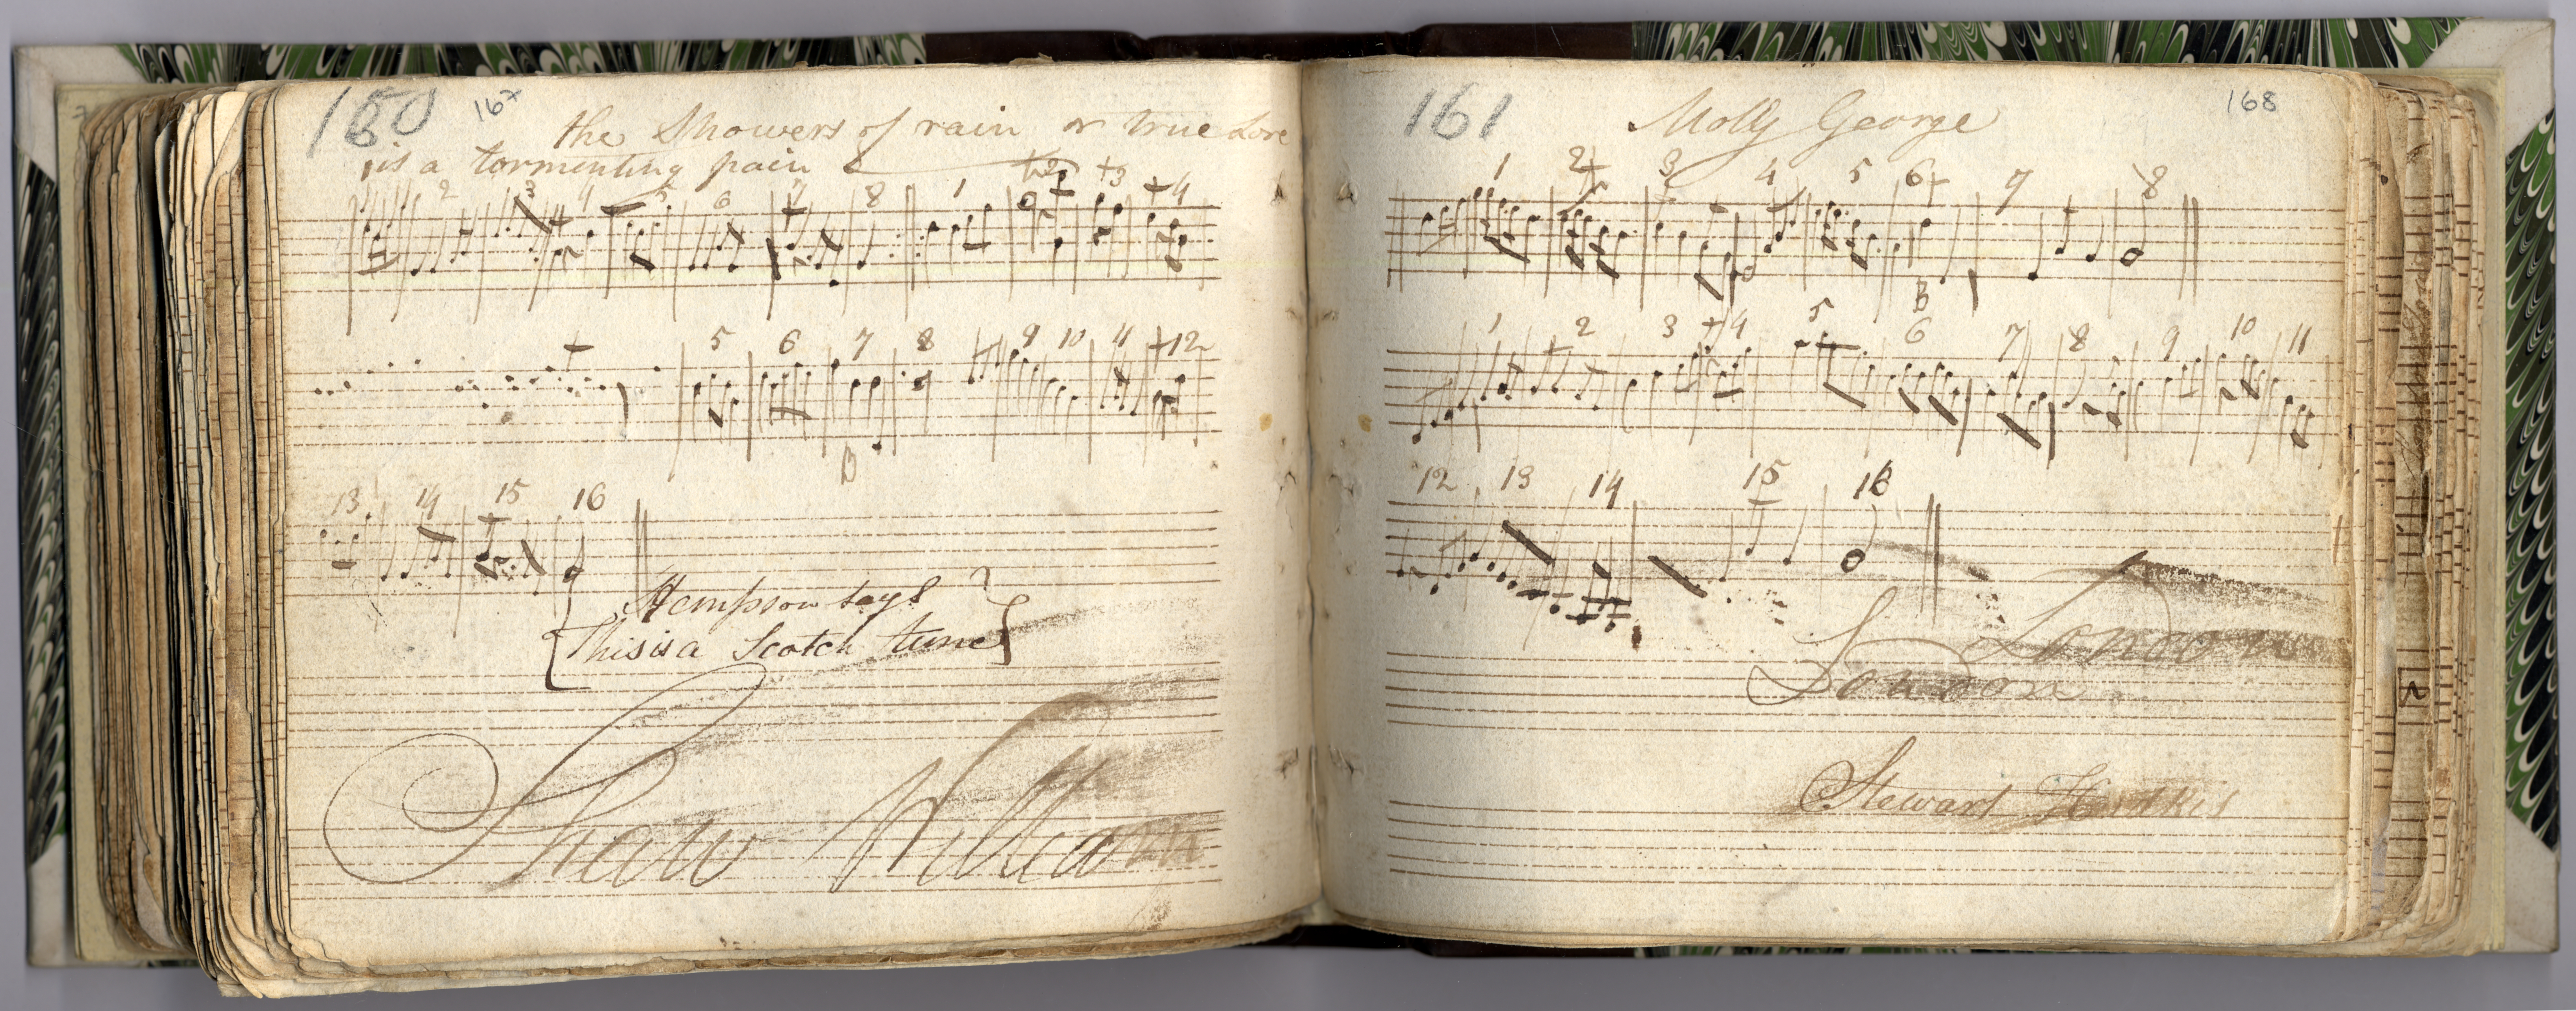 160 16x
the Showers of rain or true Love
is a tormenting pain
2 3 4 5 6 7 8 1 +2 +3 +4
5 6 7 8 9 10 11 +12
B
13 14 15 16
Hempson says
This is a Scotch tune
Shaw William
161 Molly George 168
1 2 3 4 5 6 7 8
B
1 2 3 4 5 6 7 8 9 10 11
12 13 14 15 16
London
London
Stewart